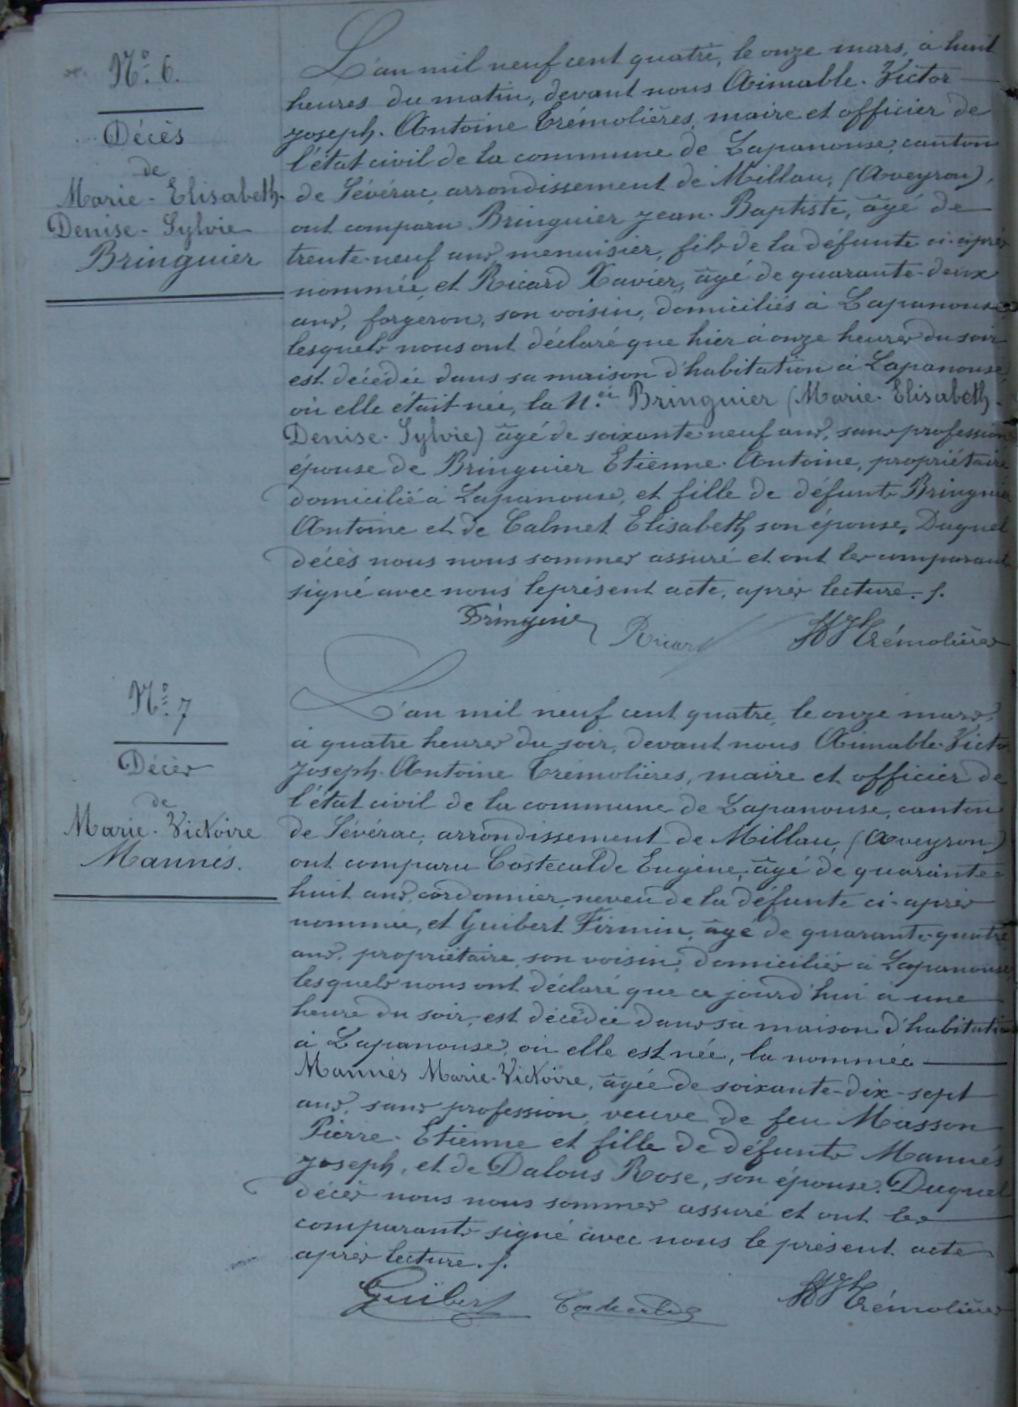 N.° 6.
Décès
de
Marie-Elisabeth-
Denise-Sylvie
Bringuier
L'an mil neuf cent quatre, le onze mars, à huit
heures du matin, devant nous Aimable-Victor-
Joseph-Antoine Trémolières, maire et officier de
l'état civil de la commune de Lapanouse, canton
de Sévérac, arrondissement de Millau, (Aveyron),
ont comparu Bringuier Jean-Baptiste, âgé de
trente-neuf ans, menuisier, fils de la défunte ci-après
nommée, et Ricard Xavier, âgé de quarante-deux
ans, forgeron, son voisin, domiciliés à Lapanouse,
lesquels nous ont déclaré que hier à onze heures du soir
est décédée dans sa maison d'habitation à Lapanouse,
où elle était née, la N.ée Bringuier (Marie-Elisabeth-
Denise-Sylvie) âgé de soixante neuf ans, sans profession
épouse de Bringuier Etienne-Antoine, propriétaire
domicilié à Lapanouse, et fille de défunts Bringuier
Antoine et de Calmet Elisabeth, son épouse. Duquel
décès nous nous sommes assuré et ont les comparants
signé avec nous le présent acte, après lecture. f.
Bringuier Ricard AV Trémolières
N.° 7
Décès
de
Marie-Victoire
Mannés.
L'an mil neuf cent quatre, le onze mars,
à quatre heures du soir, devant nous Aimable-Victor
Joseph-Antoine Trémolières, maire et officier de
l'état civil de la commune de Lapanouse, canton
de Sévérac, arrondissement de Millau, (Aveyron)
ont comparu Costecalde Eugène, âgé de quarante-
huit ans, cordonnier, neveu de la défunte ci-après
nommée, et Guibert Firmin, âgé de quarante-quatre
ans, propriétaire, son voisin, domiciliés à Lapanouse,
lesquels nous ont déclaré que ce jourd'hui à une
heure du soir, est décédée dans sa maison d'habitation
à Lapanouse, où elle est née, la nommée
Mannés Marie-Victoire, âgée de soixante-dix-sept
ans, sans profession, veuve de feu Masson
Pierre-Etienne et fille de défunts Mannés
Joseph, et de Dalous Rose, son épouse. Duquel
décès nous nous sommes assuré et ont les
comparants signé avec nous le présent acte
après lecture. f.
Guibert Costecalde AV Trémolières